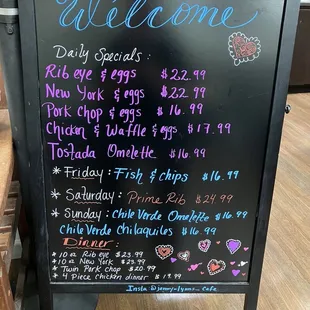 Welcome
Daily Specials:
Rib eye & eggs $22.99
New York & eggs $22.99
Pork Chop & eggs $16.99
Chicken & Waffle & eggs $17.99
Tostada Omelette $16.99
* Friday: Fish & Chips $16.99
* Saturday: Prime Rib $24.99
* Sunday: Chile Verde Omelette $16.99
Chile Verde Chilaquiles $16.99
Dinner:
* 10 oz Rib eye $23.99
* 10 oz New York $23.99
* Twin Pork chop $20.99
* 4 Piece Chicken dinner $19.99
Insta @jenny_lynns_cafe